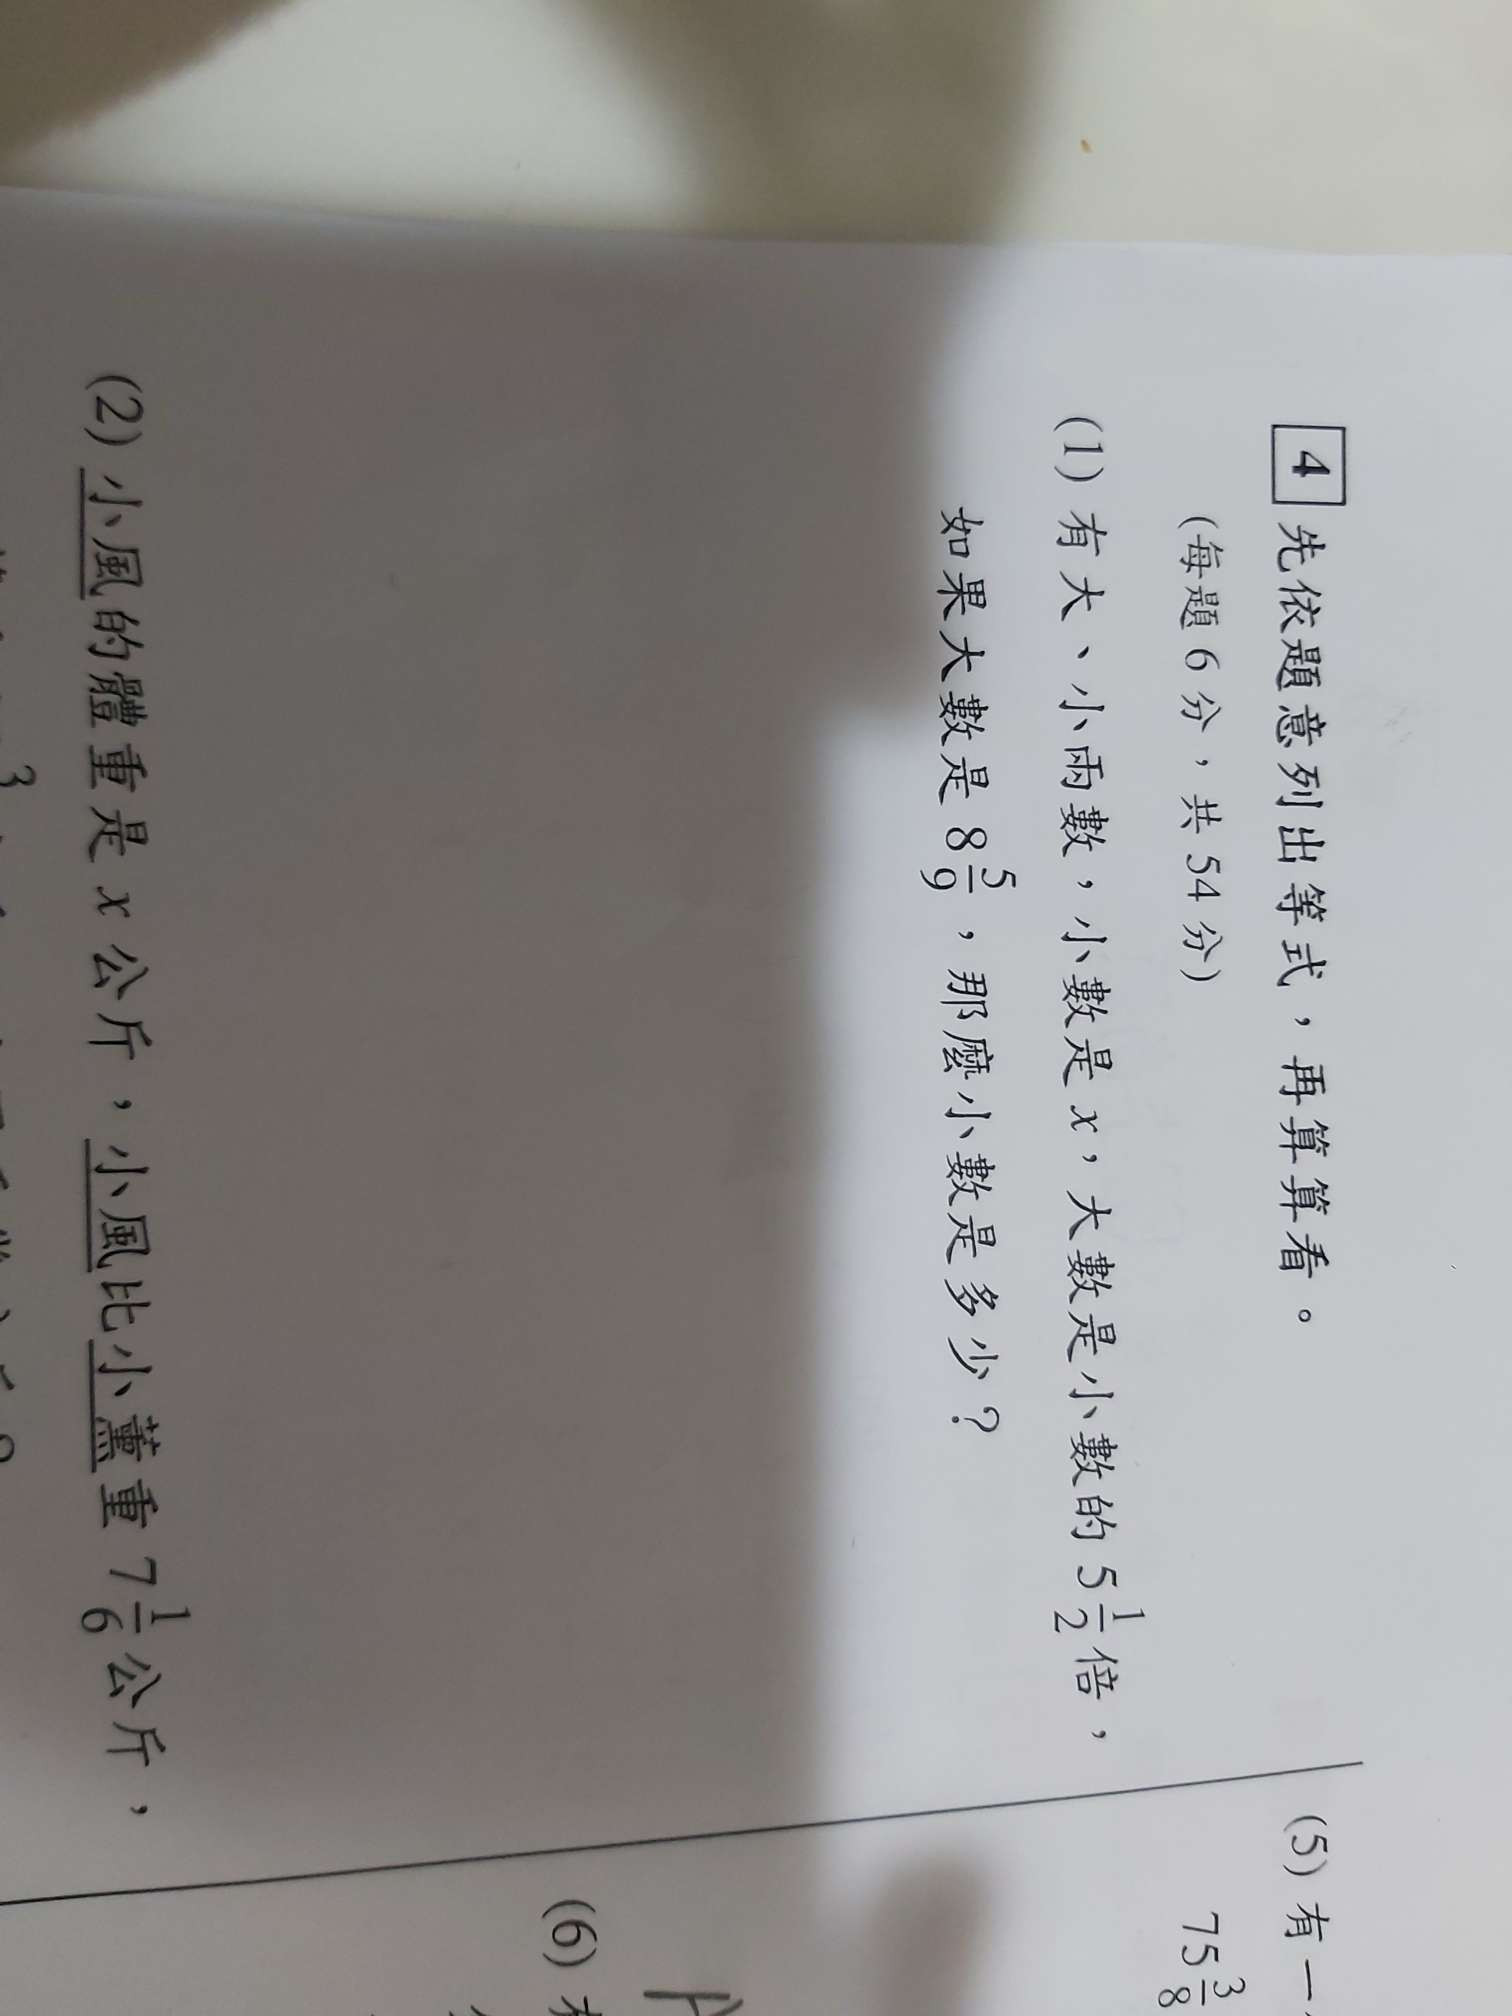 4 先依題意列出等式，再算算看。
(每題6分，共54分)
(1) 有大、小兩數，小數是x，大數是小數的5 1/2倍，
如果大數是8 5/9，那麼小數是多少？
(2) 小風的體重是x公斤，小風比小薰重7 1/6公斤，
3
(5) 有一
75 3/8
(6)